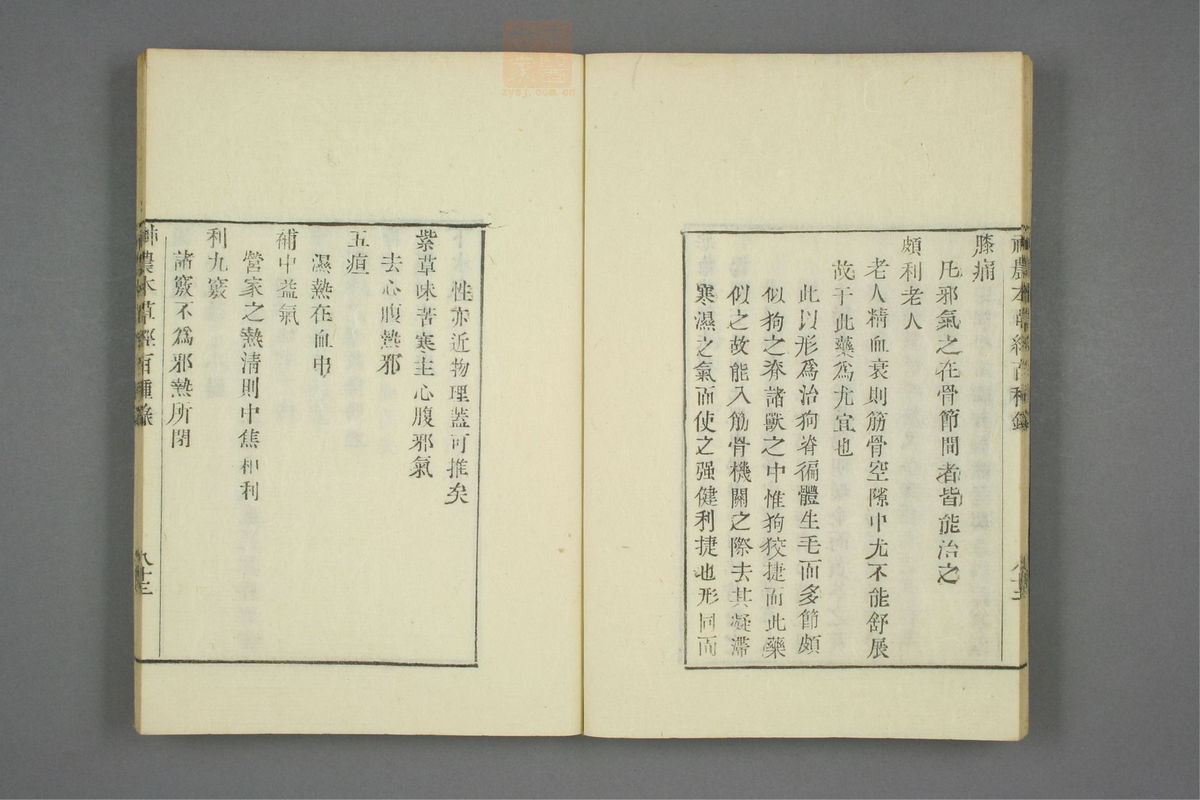 神農本草經百種錄
八十二
膝痛
凡邪氣之在骨節間者皆能治之
頗利老人
老人精血衰則筋骨空隙中尤不能舒展
故于此藥爲尤宜也
此以形爲治狗脊徧體生毛而多節頗
似狗之脊諸獸之中惟狗狡捷而此藥
似之故能入筋骨機關之際去其凝滯
寒濕之氣而使之强健利捷也形同而
性亦近物理蓋可推矣
紫草味苦寒主心腹邪氣
去心腹熱邪
五疸
濕熱在血中
補中益氣
營家之熱清則中焦和利
利九竅
諸竅不爲邪熱所閉
神農本草經百種錄
八十三
zysj.com.cn